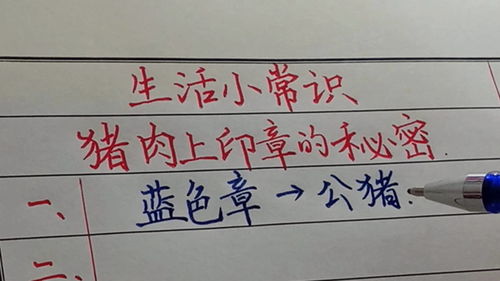 生活小常识
猪肉上印章的秘密.
一、 蓝色章→公猪.
二、